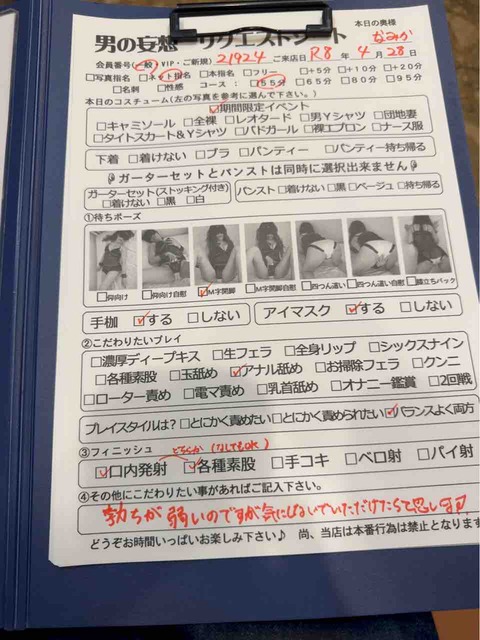 本日の奥様
男の妄想 リクエストシート なみか
会員番号(一般・VIP・ご新規) 21924 ご来店日 R8年 4月 28日
□写真指名 □ネット指名 □本指名 □フリー □+5分 □+10分 □+20分
□名刺 □性感 コース: □55分 □65分 □80分 □95分
本日のコスチューム(左の写真を参考に選んで下さい。)
☑期間限定イベント
□キャミソール □全裸 □レオタード □男Yシャツ □団地妻
□タイトスカート&Yシャツ □バドガール □裸エプロン □ナース服
下着 □着けない □ブラ □パンティー □パンティー持ち帰る
ガーターセットとパンストは同時に選択出来ません
ガーターセット(ストッキング付き) パンスト □着けない □黒 □ベージュ □持ち帰る
□着けない □黒 □白
①待ちポーズ
□仰向け □仰向け自慰 ☑M字開脚 □M字開脚自慰 □四つん這い □四つん這い自慰 □膝立ちバック
手枷 ☑する □しない アイマスク ☑する □しない
②こだわりたいプレイ
□濃厚ディープキス □生フェラ □全身リップ □シックスナイン
□各種素股 □玉舐め ☑アナル舐め □お掃除フェラ □クンニ
□ローター責め □電マ責め □乳首舐め □オナニー鑑賞 □2回戦
プレイスタイルは? □とにかく責めたい □とにかく責められたい ☑バランスよく両方
③フィニッシュ どちらか(なしでもOK)
☑口内発射 ☑各種素股 □手コキ □ベロ射 □パイ射
④その他にこだわりたい事があればご記入下さい。
勃ちが弱いのですが気にしないでいただけたらと思います
どうぞお時間いっぱいお楽しみ下さい♪ 尚、当店は本番行為は禁止となります